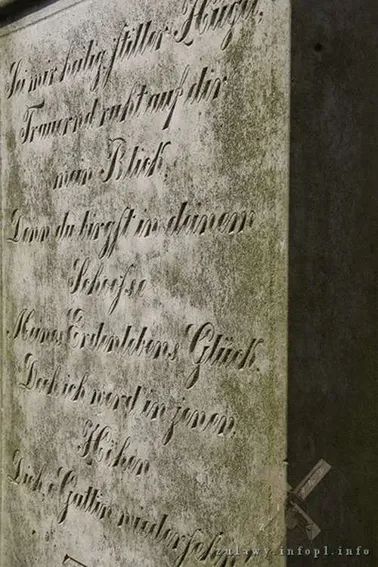 Sei mir heilig stiller Hügel,
Trauernd ruht auf dir
mein Blick,
Denn du birgst in deinem
Schooße
Meines Erdenlebens Glück.
Doch ich werd in jenen
Höhen
Dich o Gattin wiedersehn
zulawy.infopl.info